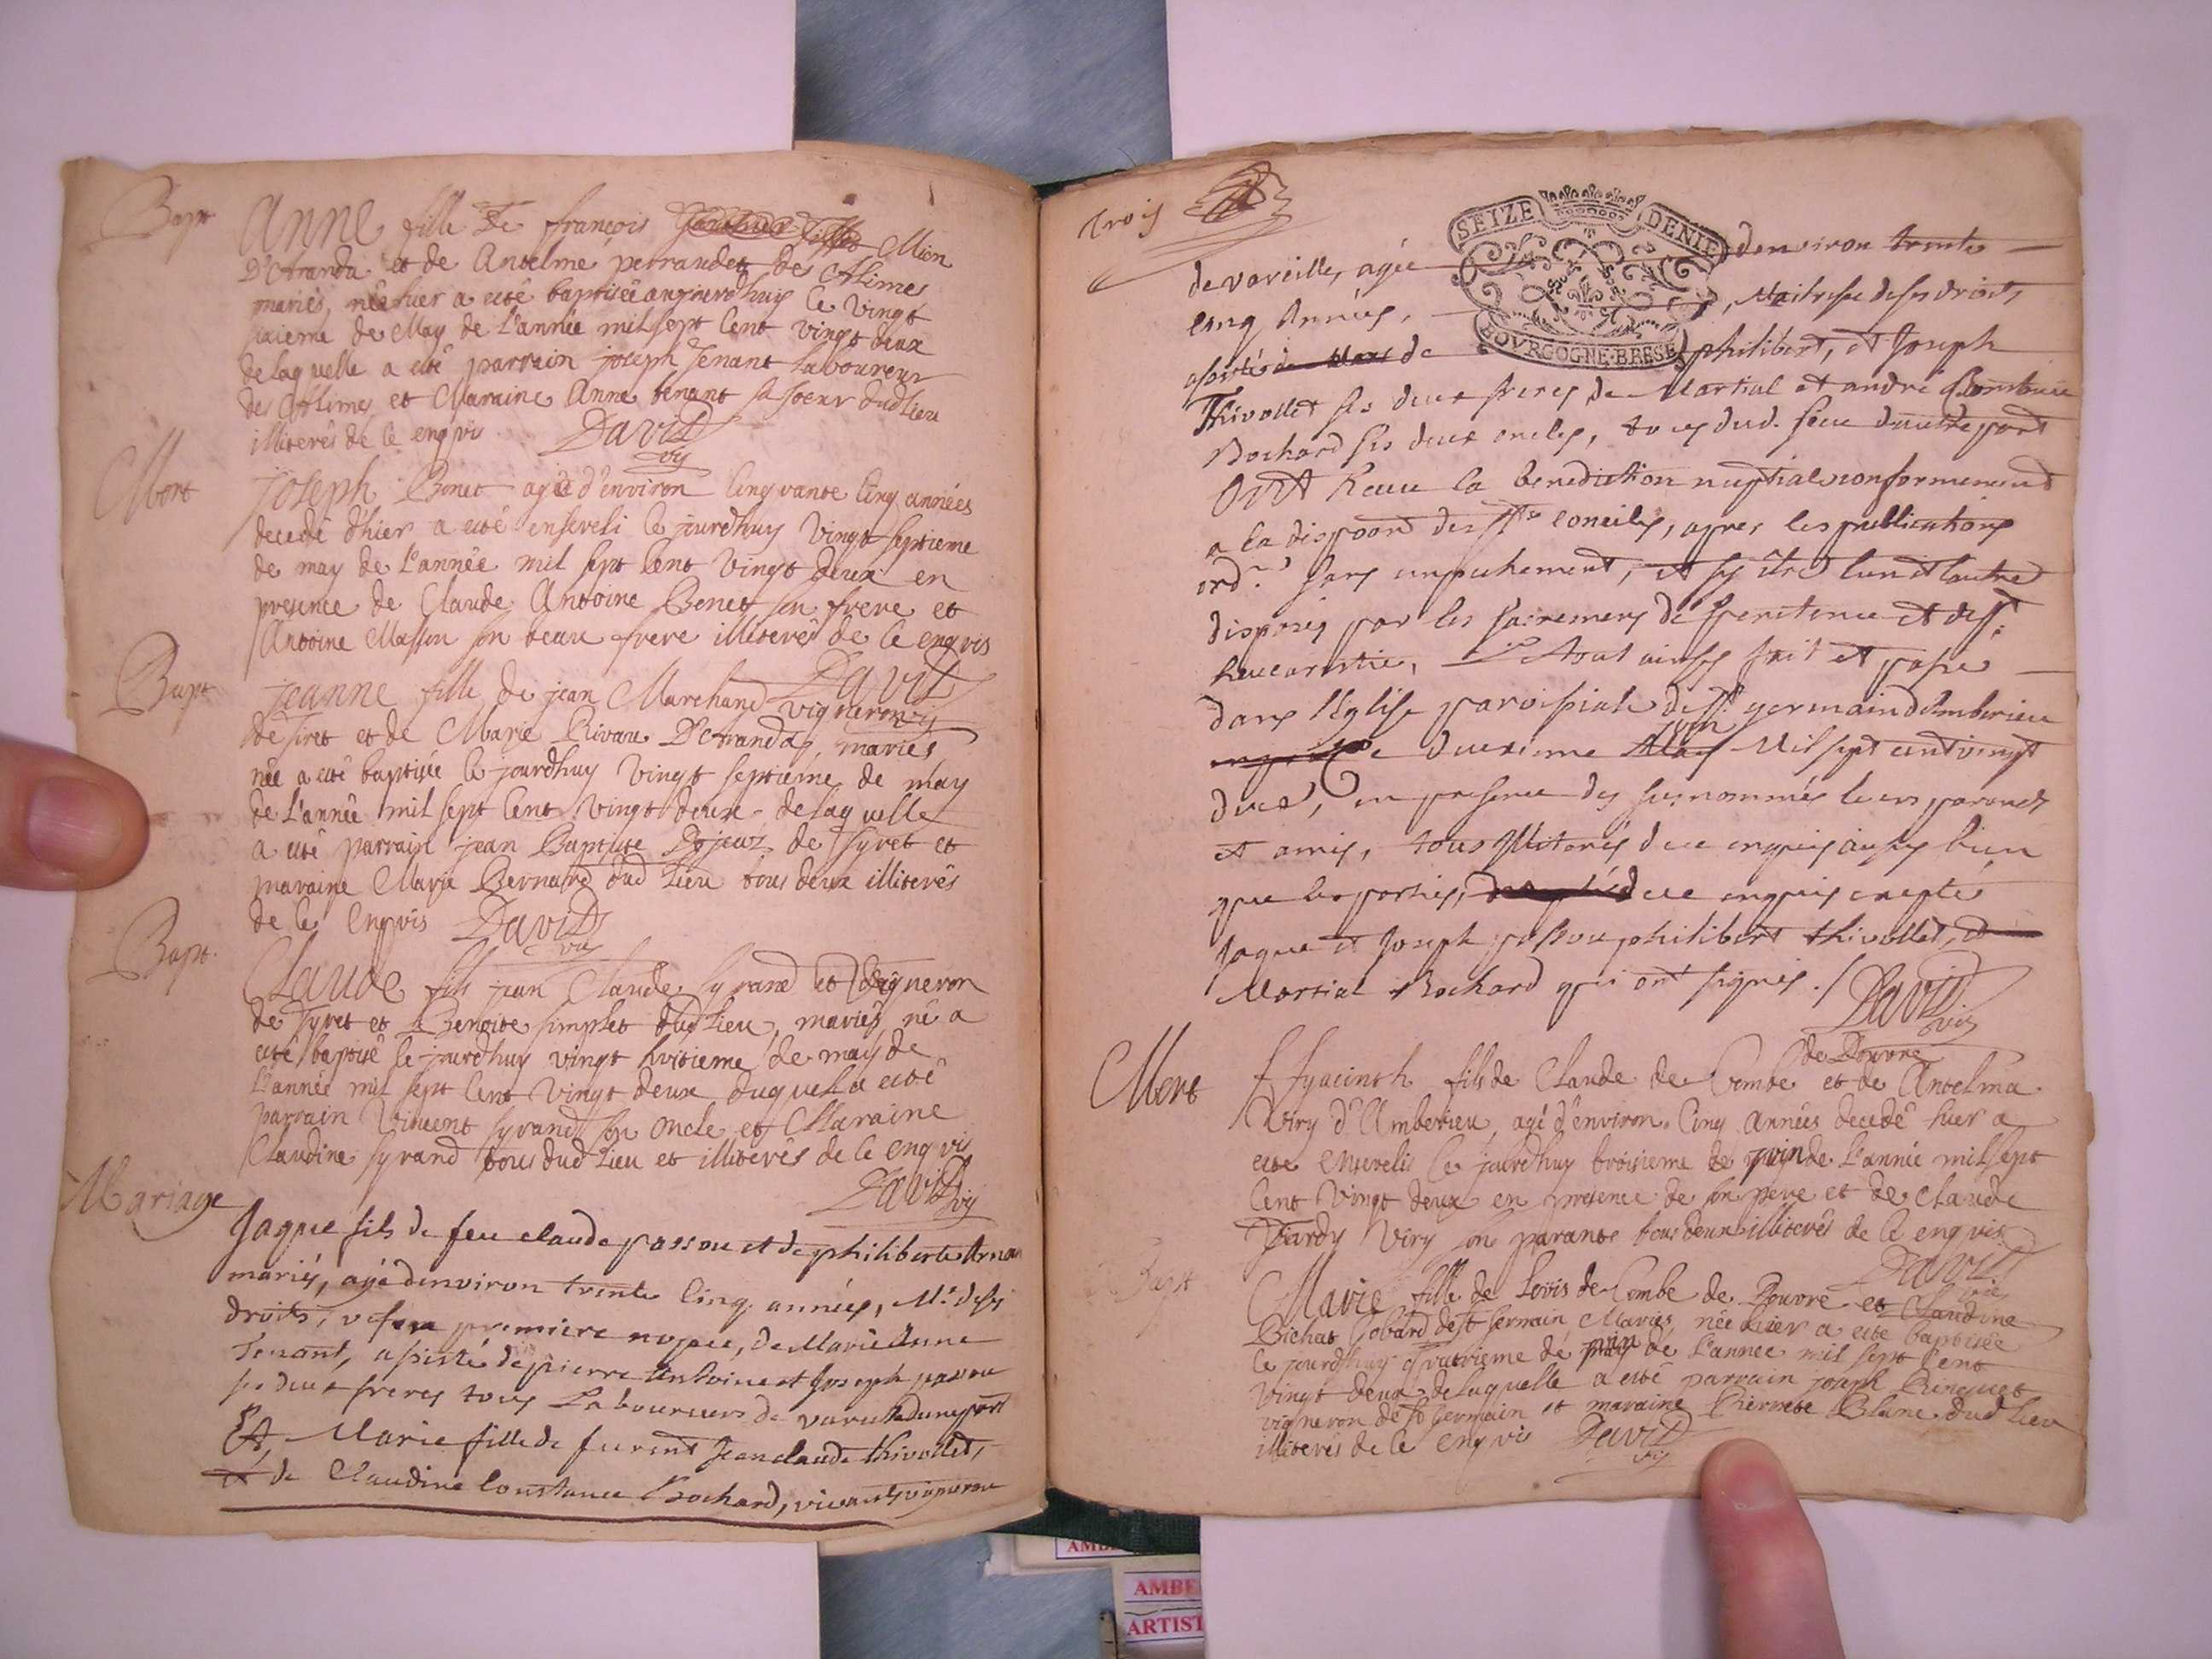 Bapt
Anne fille De françois Mion
D'Oranda et de Antelme perraudet des Alimes
mariés, née hier a eté baptisée aujourdhuy le vingt
de May de L'année mil sept Cent vingt deux
de laquelle a eté parrain joseph Tenant Laboureur
des Alimes et Maraine Anne tenant sa soeur dud Lieu
illiterés de ce enqvis David vic
Mort
joseph Bonet agé d'environ Cinqvante Cinq années
decedé d'hier a eté enseveli le jourdhuy vingt septieme
de may de L'année mil sept Cent vingt deux en
presence de Claude Antoine Benet son frere et
Antoine Masson son beau frere illiterés de ce enqvis
David vic
Bapt
jeanne fille de jean Marchand vigneron
de et de Marie Rivau D'Oranda, mariés
née a eté baptisée le jourdhuy vingt septieme de may
de L'année mil sept Cent vingt deux de laquelle
a eté parrain jean Baptiste de Tyret et
maraine Marie Bernard dud Lieu tous deux illiterés
de ce enqvis David vic
Bapt.
Claude fils jean Claude Syrand et Vigneron
de Tyret et Benoite simplet dud Lieu, mariés, né a
eté baptisé le jourdhuy vingt hvitieme de may de
L'année mil sept Cent vingt deux duquel a eté
parrain vincent syrand son oncle et Maraine
Claudine syrand tous dud Lieu et illiterés de ce enqvis
David vic
Mariage
Jaque fils de feu claude passou et de philiberte
mariés, agé denviron trente Cinq. années, Mre de ses
droits, premiere nopce, de Marie Anne
Tenant, assisté de pierre Antoine et Joseph passou
ses deux freres tous Laboureurs de vareille dune part
Et Marie fille de furent Jean claude thivollet,
et de Claudine Constance Bochard, vivants
trois
SEIZE DENIE
BOVRGOGNE BRESE
de vareille, agée denviron trente
cinq Années, , Maitresse de ses droits
assistée de philibert, et Joseph
Thivollet ses deux freres, de Martial et andré
Bochard ses deux oncles, tous dud. lieu dautre part
Ont heu la benediction nuptiale conformement
a la dispoon des Sts conciles, apres les publications
ordres sans empechement, et sy être l'un et l'autre
disposés par les sacremens de penitence et de ste
heucaristie, Le tout ainsy fait et passé
dans l'Eglise paroissiale de st germain d'Amberieu
juin
ce deuxieme Mil sept cent vingt
deux, en presence des susnommés leurs parents
et amis, tous illiterés de ce enquis aussy bien
que les parties, de ce enquis excepté
Jaque et Joseph passou philibert thivollet, et
Martial Bochard qui ont signés ./. David vic
Mort
de Douvre
Hyacinth fils de Claude de Combe et de Antelma
Viry d'Amberieu agé d'environ Cinq Années decedé hier a
eté ensevelis le jourdhuy troisieme de juin de L'année mil sept
Cent vingt deux en presence de son pere et de Claude
Tardy Viry son parante tous deux illiterés de ce enqvis
David vic
Bapt
Marie fille de Lovis de Combe de Douvre et Claudine
Bichat Gobard de st Germain Mariés, née hier a eté baptisée
le jourdhuy qvatrieme de juin de L'année mil sept Cent
vingt deux de laquelle a eté parrain joseph
vigneron de st Germain et maraine Pierrette Blanc dud Lieu
illiterés de ce enqvis David vic
AMBE
ARTIST